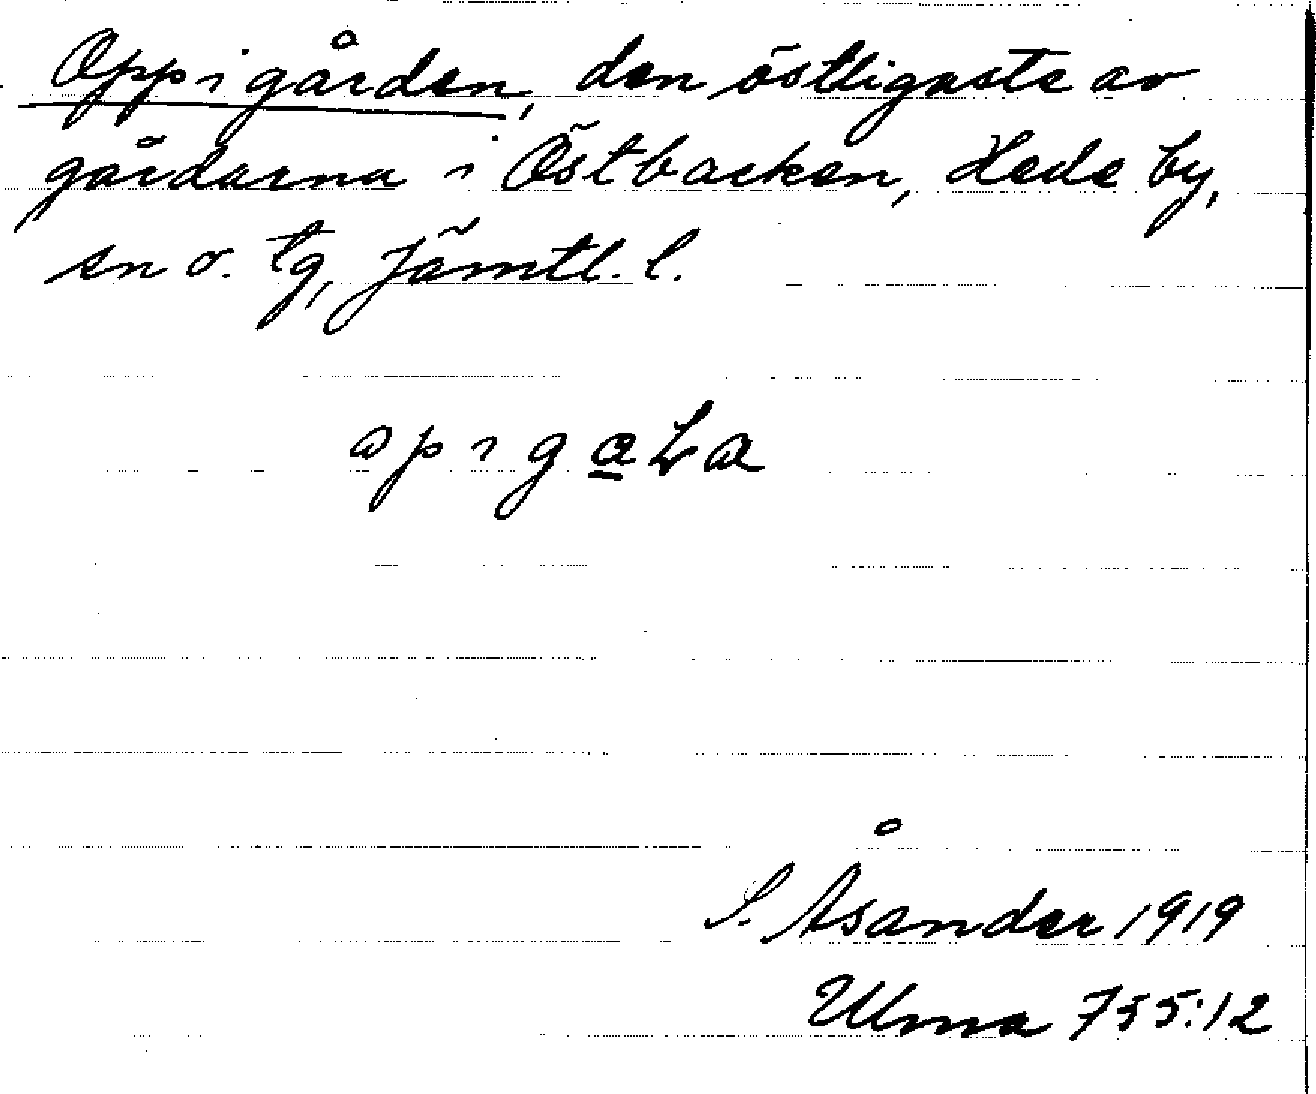 Oppigården, den östligaste av
gårdarna i Östbacken, Hede by,
sn o. tg, Jämtl. l.
opigaLa
S. Åsander 1919
Ulma 755:12